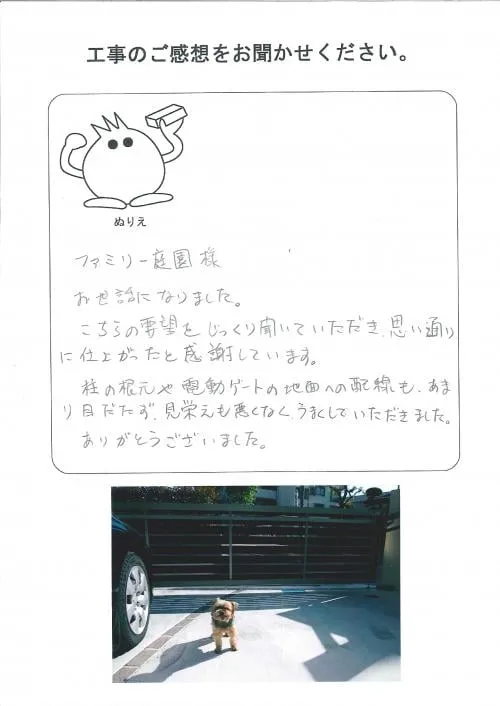 工事のご感想をお聞かせください。
ぬりえ
ファミリー庭園様
お世話になりました。
こちらの要望をじっくり聞いていただき、思い通り
に仕上がったと感謝しています。
柱の根元や電動ゲートの地面への配線も、あま
り目だたず、見栄えも悪くなく、うまくしていただきました。
ありがとうございました。